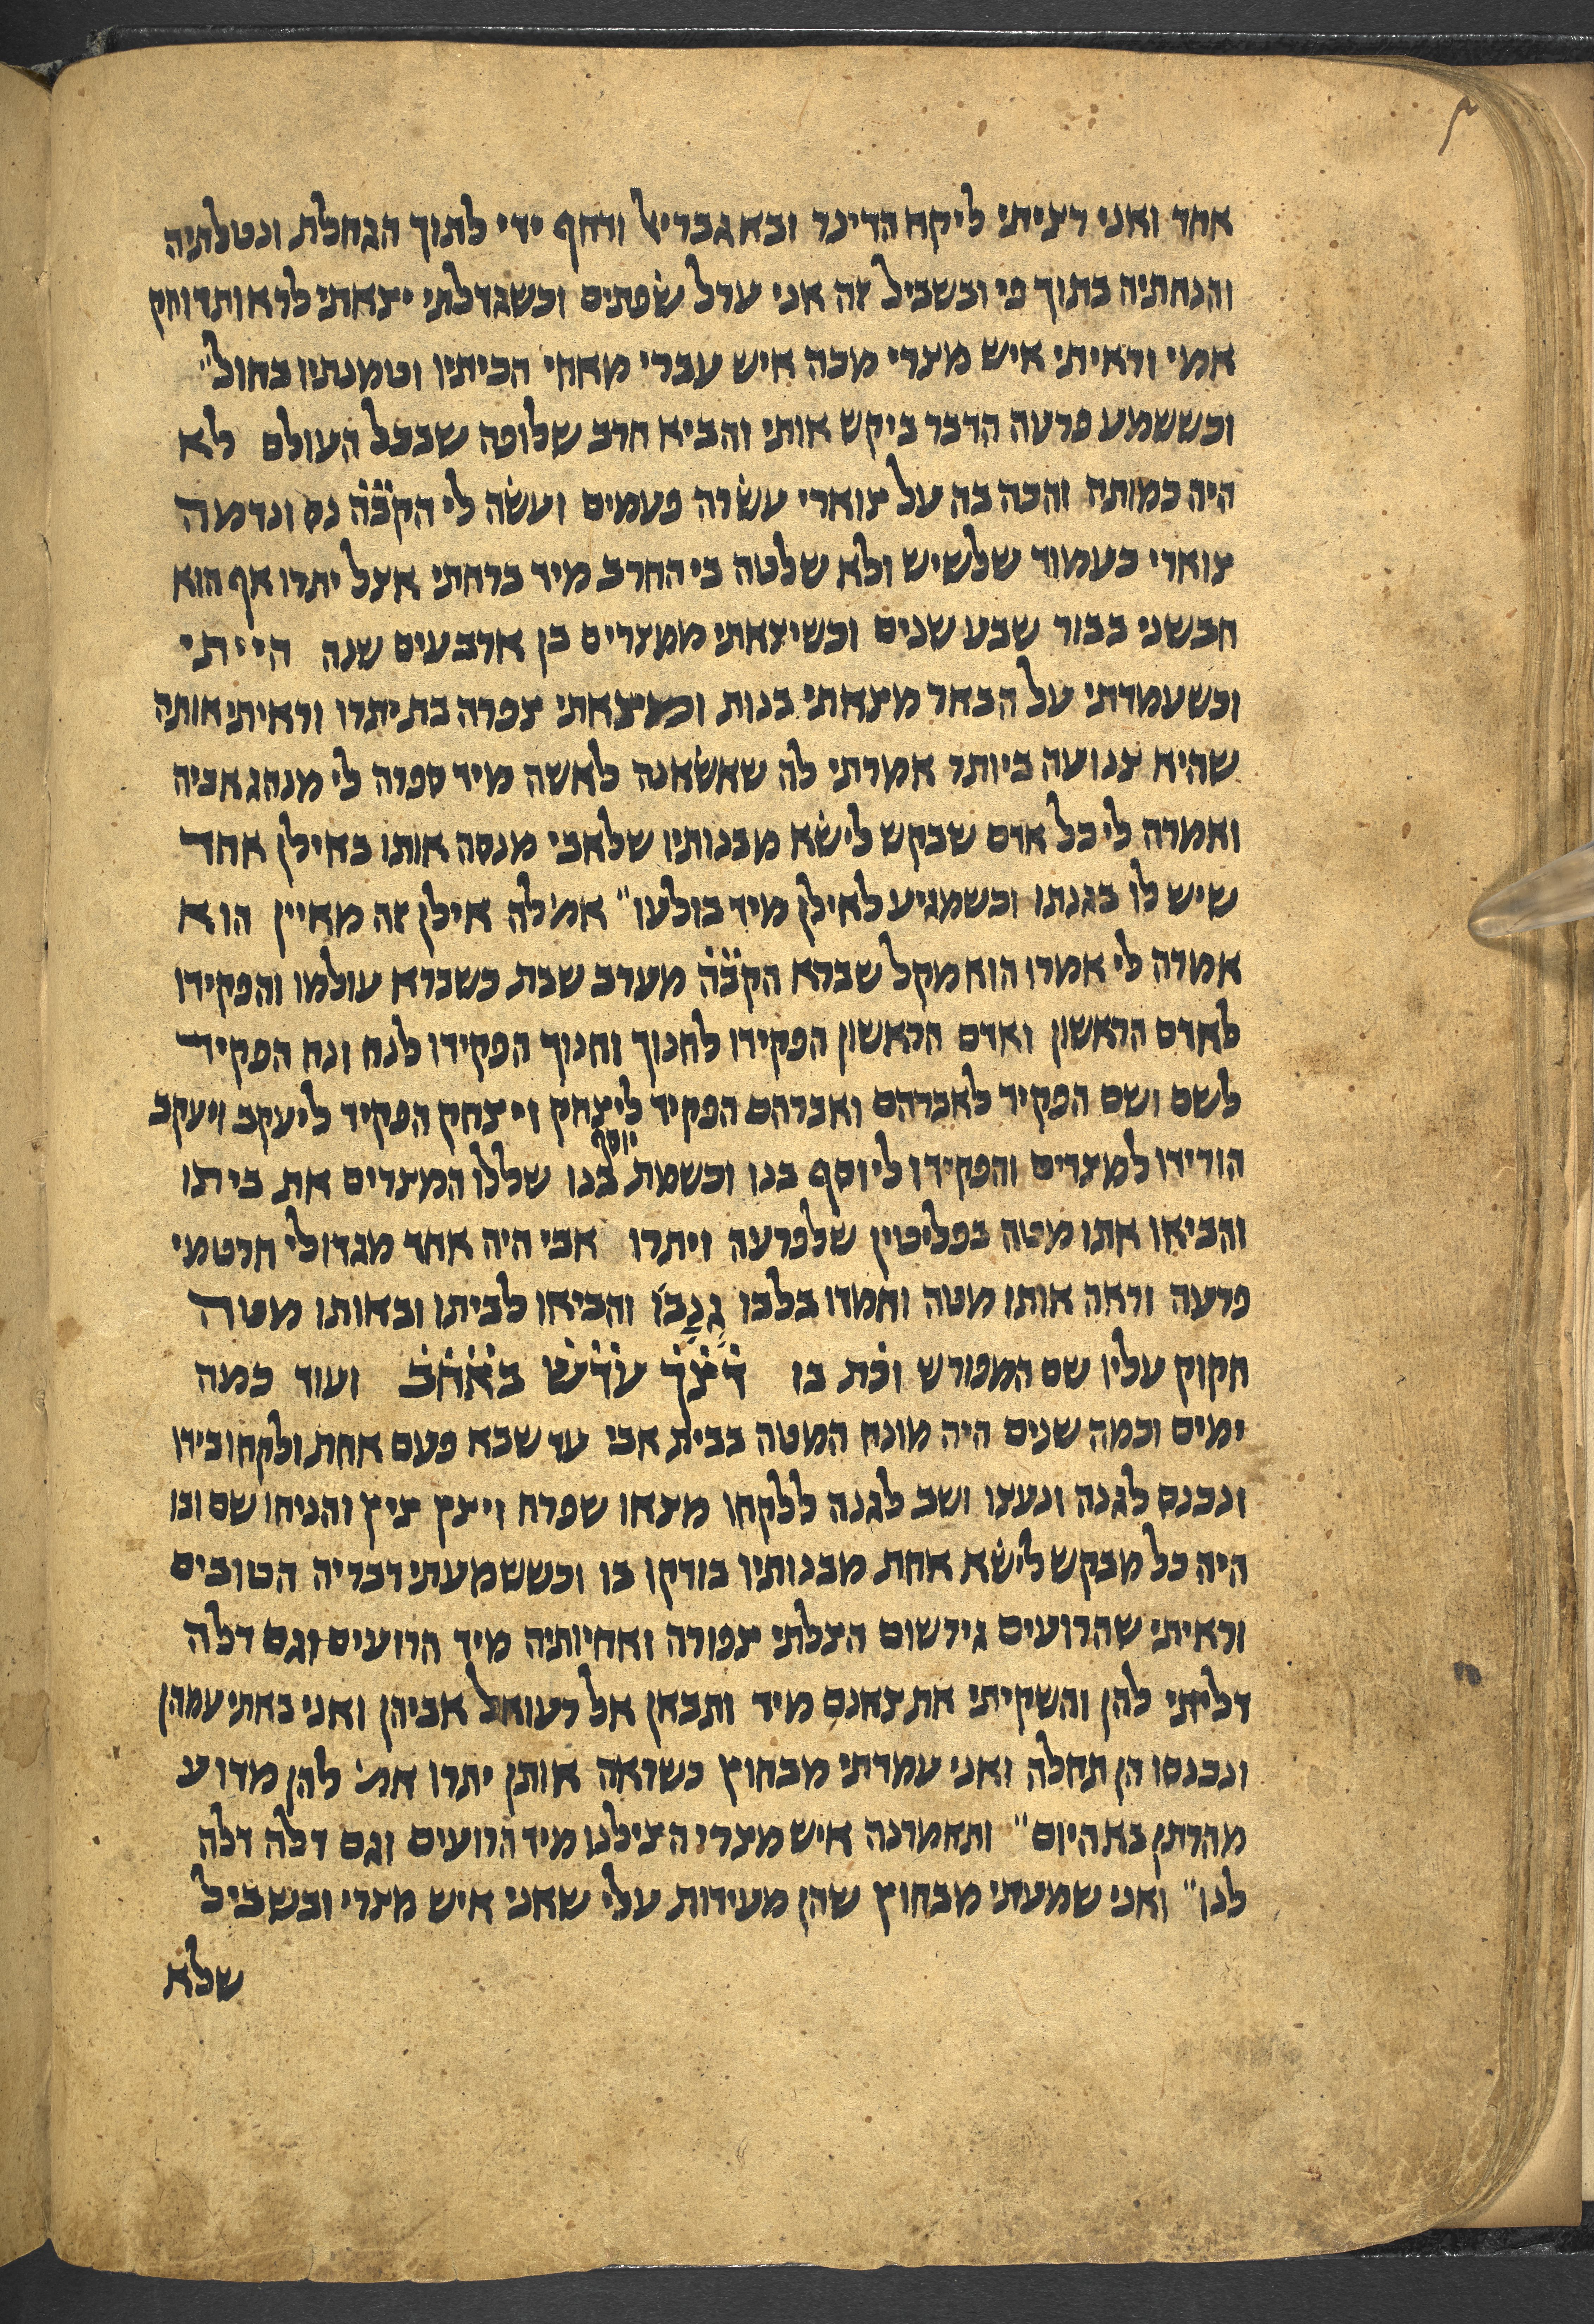 אחד ואני רציתי ליקח הדינר ובא גבריאל ודחף ידי לתוך הגחלת ונטלתיה
והנחתיה בתוך פי ובשביל זה אני ערל שפתים וכשגדלתי יצאתי לראות דוחק
אמי וראיתי איש מצרי מכה איש עברי מאחי הכיתיו וטמנתיו בחול״
וכששמע פרעה הדבר ביקש אותי והביא חרב שלופה שבכל העולם לא
היה כמותה והכה בה על צוארי עשרה פעמים ועשה לי הקב̇ה̇ נס ונדמה
צוארי כעמוד שלשיש ולא שלטה בי החרב מיד ברחתי אצל יתרו אף הוא
חבשני בבור שבע שנים וכשיצאתי ממצרים בן ארבעים שנה הייתי
וכשעמדתי על הבאר מצאתי בנות וכשיצאתי צפרה בת יתרו וראיתי אותה
שהיא צנועה ביותר אמרתי לה שאשאנה לאשה מיד ספרה לי מנהג אביה
ואמרה לי כל אדם שבקש לישא מבנותיו שלאבי מנסה אותו באילן אחד
שיש לו בגנתו וכשמגיע לאילן מיד בולעו״ אמ׳ לה אילן זה מאיין הוא
אמרה לי אמרו הוא מקל שברא הקב̇ה̇ מערב שבת כשברא עולמו והפקידו
לאדם הראשון ואדם הראשון הפקידו לחנוך וחנוך הפקידו לנח ונח הפקיד
לשם ושם הפקיד לאברהם ואברהם הפקיד ליצחק ויצחק הפקיד ליעקב ויעקב
הורידו למצרים והפקידו ליוסף בנו וכשמת יוסף בנו שללו המצרים את ביתו
והביאו אתו מטה בפליטין שלפרעה ויתרו אבי היה אחד מגדולי חרטמי
פרעה וראה אותו מטה וחמדו בלבו גנבו והביאו לביתו ובאותו מטה
חקוק עליו שם המפורש וכ̇ת בו ד̇צ̇ך̇ ע̇ד̇ש̇ ב̇א̇ח̇ב̇ ועוד כמה
ימים וכמה שנים היה מונח המטה בבית אבי עד שבא פעם אחת ולקחו בידו
ונכנס לגנה ונעצו ושב לגנה ללקחו מצאו שפרח ויצץ ציץ והניחו שם ובו
היה כל מבקש לישא אחת מבנותיו בודקו בו וכששמעתי דבריה הטובים
וראיתי שהרועים גירשום הצלתי צפורה ואחיותיה מיד הרועים וגם דלה
דליתי להן והשקיתי את צאנם מיד ותבאן אל רעואל אביהן ואני באתי עמהן
ונכנסו הן תחלה ואני עמדתי מבחוץ כשראה אותן יתרו אמ׳ להן מדוע
מהרתן בא היום״ ותאמרנה איש מצרי הצילנו מיד הרועים וגם דלה דלה
לנו״ ואני שמעתי מבחוץ שהן מעידות עלי שאני איש מצרי ובשביל
שלא